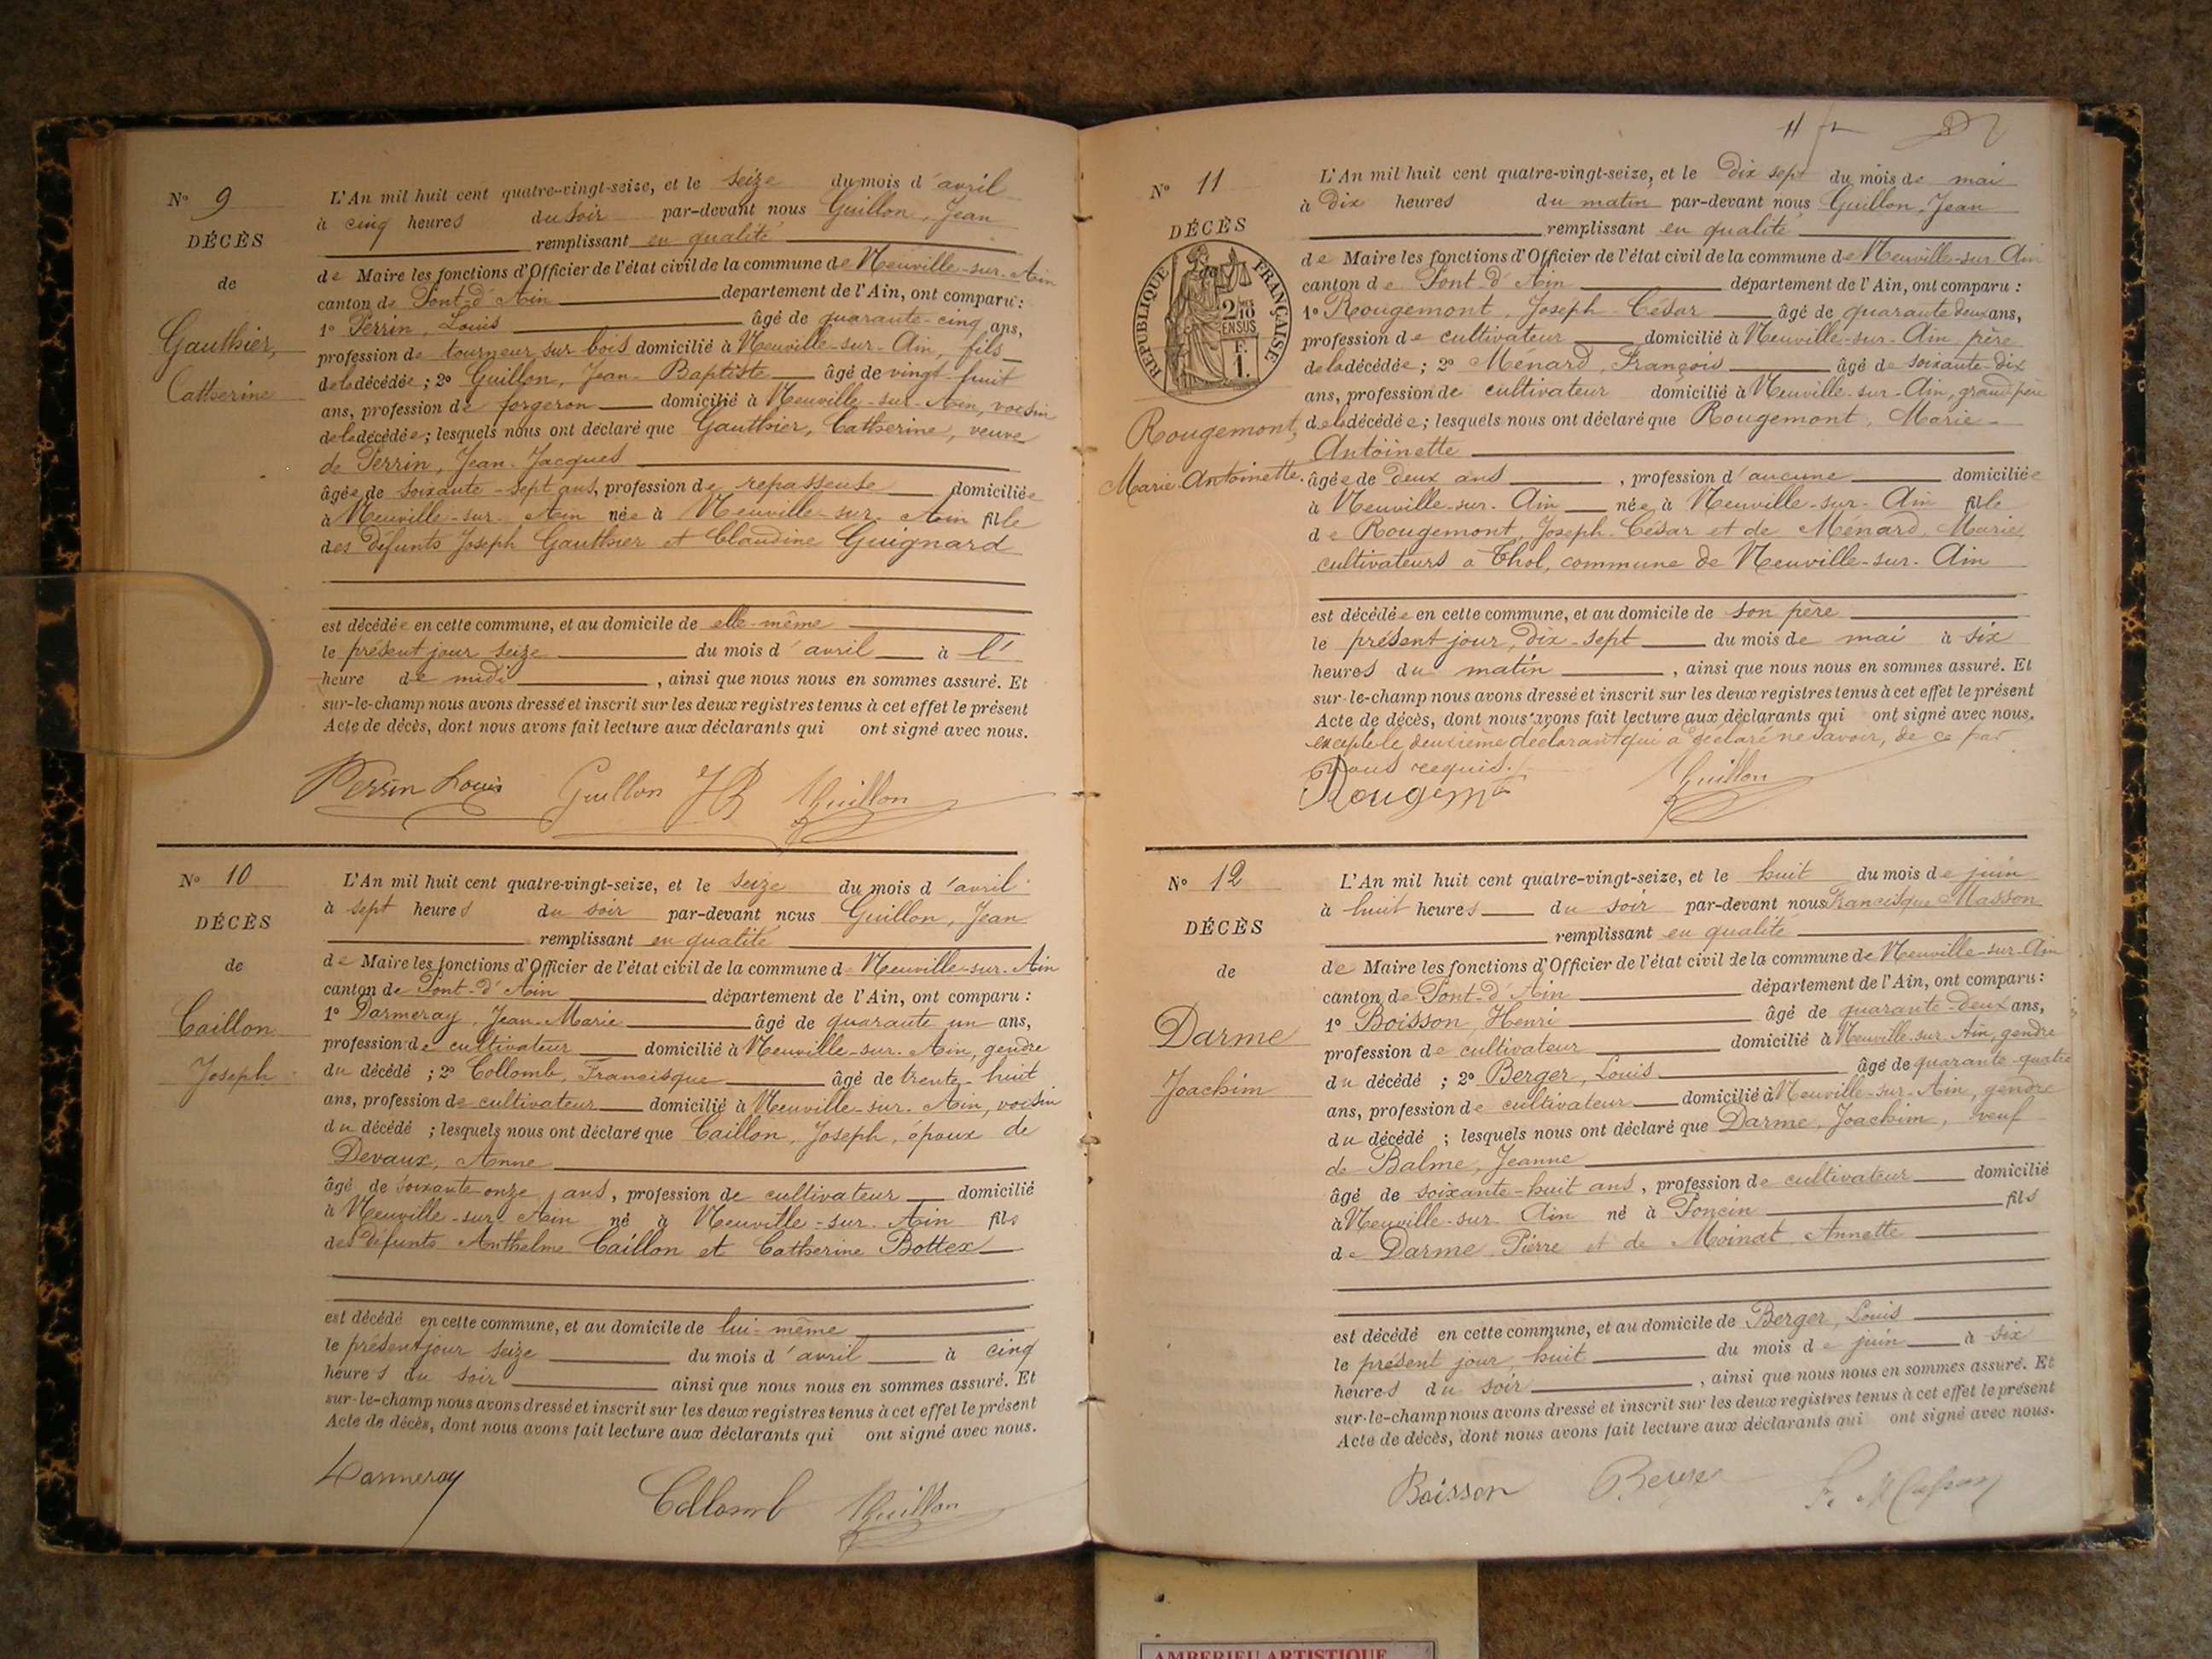 Nº 9
DÉCÈS
de
Gauthier,
Catherine
L'An mil huit cent quatre-vingt-seize, et le seize du mois d'avril
à cinq heures du soir par-devant nous Guillon, Jean
remplissant en qualité
de Maire les fonctions d'Officier de l'état civil de la commune de Neuville-sur-Ain
canton de Pont-d'Ain département de l'Ain, ont comparu :
1º Perrin, Louis âgé de quarante-cinq ans,
profession de tourneur sur bois domicilié à Neuville-sur-Ain, fils
de la décédée ; 2º Guillon, Jean-Baptiste âgé de vingt-huit
ans, profession de forgeron domicilié à Neuville-sur-Ain, voisin
de la décédée ; lesquels nous ont déclaré que Gauthier, Catherine, veuve
de Perrin, Jean-Jacques
âgée de soixante-sept ans, profession de repasseuse domiciliée
à Neuville-sur-Ain née à Neuville-sur-Ain fille
des défunts Joseph Gauthier et Claudine Guignard
est décédée en cette commune, et au domicile de elle-même
le présent jour seize du mois d'avril à l'
heure de midi, ainsi que nous nous en sommes assuré. Et
sur-le-champ nous avons dressé et inscrit sur les deux registres tenus à cet effet le présent
Acte de décès, dont nous avons fait lecture aux déclarants qui ont signé avec nous.
Perrin Louis Guillon JB Guillon
Nº 10
DÉCÈS
de
Caillon
Joseph
L'An mil huit cent quatre-vingt-seize, et le seize du mois d'avril
à sept heures du soir par-devant nous Guillon, Jean
remplissant en qualité
de Maire les fonctions d'Officier de l'état civil de la commune d Neuville-sur-Ain
canton de Pont-d'Ain département de l'Ain, ont comparu :
1º Darmeray, Jean-Marie âgé de quarante un ans,
profession de cultivateur domicilié à Neuville-sur-Ain, gendre
du décédé ; 2º Collomb, Francisque âgé de trente-huit
ans, profession de cultivateur domicilié à Neuville-sur-Ain, voisin
du décédé ; lesquels nous ont déclaré que Caillon, Joseph, époux de
Devaux, Anne
âgé de soixante-onze ans, profession de cultivateur domicilié
à Neuville-sur-Ain né à Neuville-sur-Ain fils
des défunts Anthelme Caillon et Catherine Bottex
est décédé en cette commune, et au domicile de lui-même
le présent jour seize du mois d'avril à cinq
heures du soir ainsi que nous nous en sommes assuré. Et
sur-le-champ nous avons dressé et inscrit sur les deux registres tenus à cet effet le présent
Acte de décès, dont nous avons fait lecture aux déclarants qui ont signé avec nous.
Darmeray Collomb Guillon
11
Nº 11
DÉCÈS
RÉPUBLIQUE FRANÇAISE
2/10 EN SUS
F. 1.
Rougemont,
Marie-Antoinette.
L'An mil huit cent quatre-vingt-seize, et le dix sept du mois de mai
à dix heures du matin par-devant nous Guillon, Jean
remplissant en qualité
de Maire les fonctions d'Officier de l'état civil de la commune de Neuville-sur-Ain
canton de Pont-d'Ain département de l'Ain, ont comparu :
1º Rougemont, Joseph-César âgé de quarante deux ans,
profession de cultivateur domicilié à Neuville-sur-Ain père
de la décédée ; 2º Ménard, François âgé de soixante-dix
ans, profession de cultivateur domicilié à Neuville-sur-Ain, grand-père
de la décédée ; lesquels nous ont déclaré que Rougemont, Marie-
Antoinette
âgée de deux ans, profession d'aucune domiciliée
à Neuville-sur-Ain née à Neuville-sur-Ain fille
de Rougemont, Joseph-César et de Ménard, Marie,
cultivateurs à Thol, commune de Neuville-sur-Ain
est décédée en cette commune, et au domicile de son père
le présent jour, dix-sept du mois de mai à six
heures du matin, ainsi que nous nous en sommes assuré. Et
sur-le-champ nous avons dressé et inscrit sur les deux registres tenus à cet effet le présent
Acte de décès, dont nous avons fait lecture aux déclarants qui ont signé avec nous.
excepté le deuxième déclarant qui a déclaré ne savoir, de ce par
nous requis.
Rougemt Guillon
Nº 12
DÉCÈS
de
Darme
Joachim
L'An mil huit cent quatre-vingt-seize, et le huit du mois de juin
à huit heures du soir par-devant nous Francisque Masson
remplissant en qualité
de Maire les fonctions d'Officier de l'état civil de la commune de Neuville-sur-Ain
canton de Pont-d'Ain département de l'Ain, ont comparu :
1º Boisson, Henri âgé de quarante-deux ans,
profession de cultivateur domicilié à Neuville-sur-Ain, gendre
du décédé ; 2º Berger, Louis âgé de quarante-quatre
ans, profession de cultivateur domicilié à Neuville-sur-Ain, gendre
du décédé ; lesquels nous ont déclaré que Darme, Joachim, veuf
de Balme, Jeanne
âgé de soixante-huit ans, profession de cultivateur domicilié
à Neuville-sur-Ain né à Poncin fils
de Darme Pierre et de Moinat Annette
est décédé en cette commune, et au domicile de Berger, Louis
le présent jour, huit du mois de juin à six
heures du soir, ainsi que nous nous en sommes assuré. Et
sur-le-champ nous avons dressé et inscrit sur les deux registres tenus à cet effet le présent
Acte de décès, dont nous avons fait lecture aux déclarants qui ont signé avec nous.
Boisson Berger F. Masson
AMBERIEU ARTISTIQUE